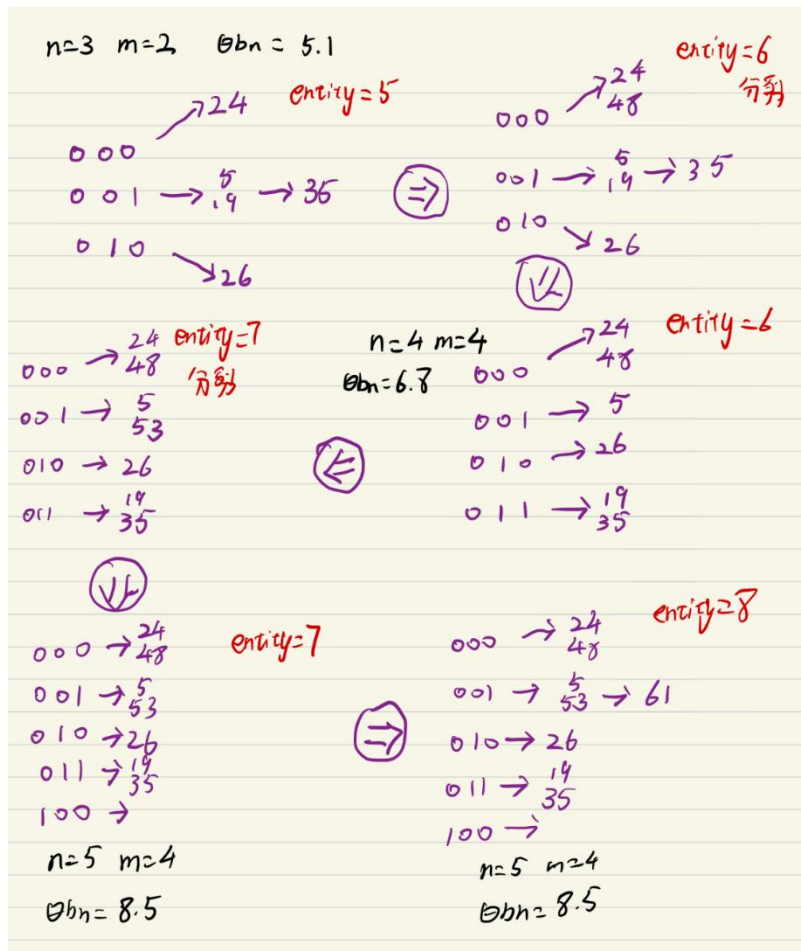 n=3 m=2 θbn = 5.1
entity=5
→24
000
001 → 5 19 → 35
010
→26
⇒
entity=6
分裂
000 → 24 48
001 → 5 19 → 35
010
→ 26
⇓
entity=6
n=4 m=4
θbn=6.8
000 → 24 48
001 → 5
010 → 26
011 → 19 35
⇐
entity=7
分裂
000 → 24 48
001 → 5 53
010 → 26
011 → 19 35
⇓
entity=7
000 → 24 48
001 → 5 53
010 → 26
011 → 19 35
100 →
n=5 m=4
θbn= 8.5
⇒
entity=8
000 → 24 48
001 → 5 53 → 61
010 → 26
011 → 19 35
100 →
n=5 m=4
θbn= 8.5